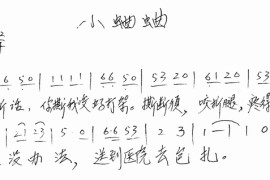 小蛐蛐
2
6 6 5 0 | 1 1 1 1 | 6 6 5 0 | 5 3 2 0 | 6 1 2 0 | 5 3
你斯我没好打架。撕断须，咬断腿，疼得
2 1 2 3 | 5 · 0 | 6 · 6 5 3 | 2 3 | 1 - | 1 0
没办法，送到医院去包扎。